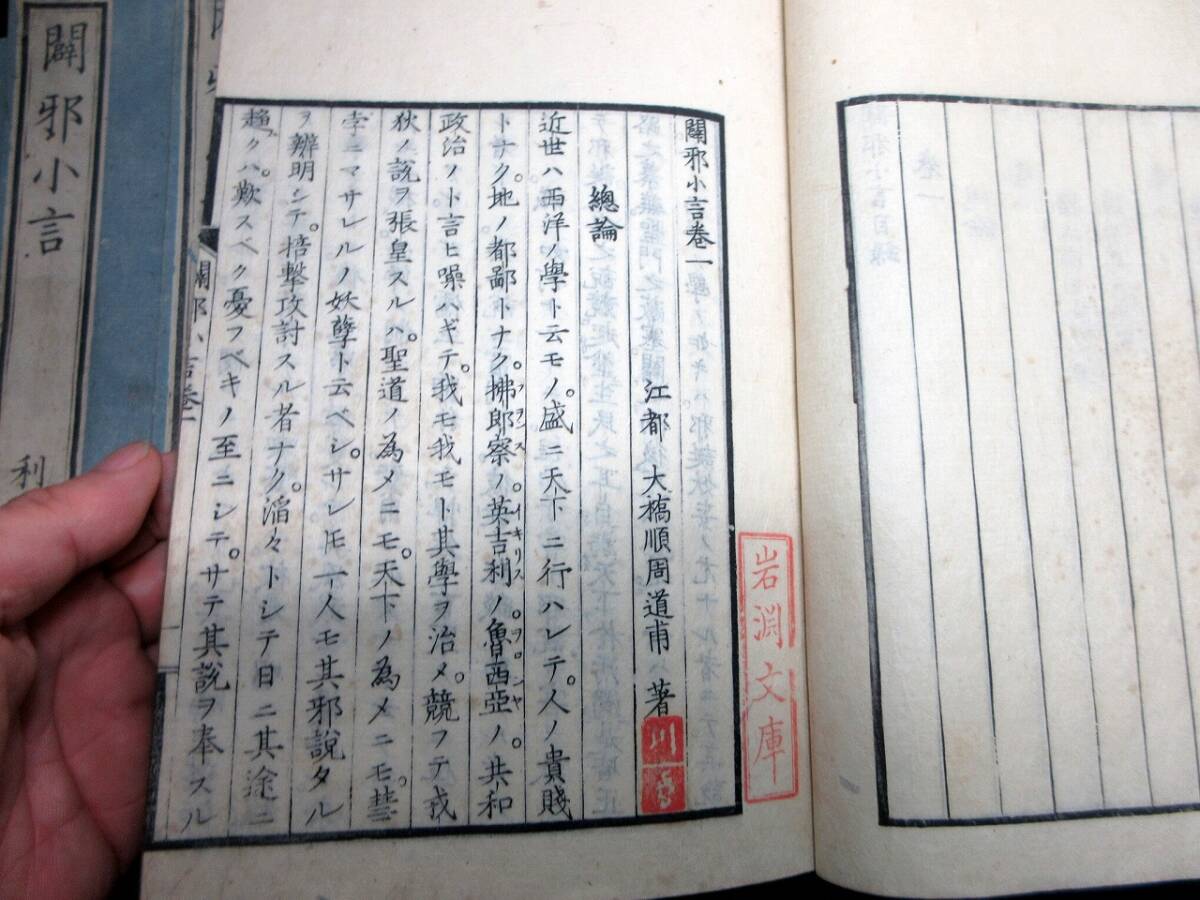 闢邪小言卷一
江都 大橋順周道甫 著
總論
近世ハ西洋ノ學ト云モノ。盛ニ天下ニ行ハレテ。人ノ貴賤
トナク。地ノ都鄙トナク。拂郎察ノ。英吉利ノ。魯西亞ノ。共和
フランス
イギリス
ヲロシヤ
政治ノト言ヒ噪ハギテ。我モ我モト其學ヲ治メ。競フテ戎
狄ノ說ヲ張皇スルハ。聖道ノ為メニモ。天下ノ為メニモ。彗
孛ニマサレルノ妖孽ト云ベシ。サレ𪜈一人モ其邪說タル
ヲ辨明シテ。掊擊攻討スル者ナク。滔々トシテ日ニ其途ニ
趨クハ。歎スベク憂フベキノ至ニシテ。サテ其說ヲ奉スル
岩淵文庫
闢邪小言
利
闢邪小言卷一